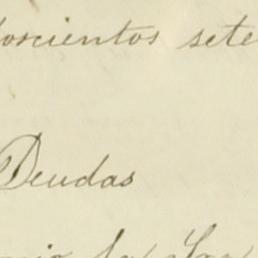 doscientos sete
Deudas